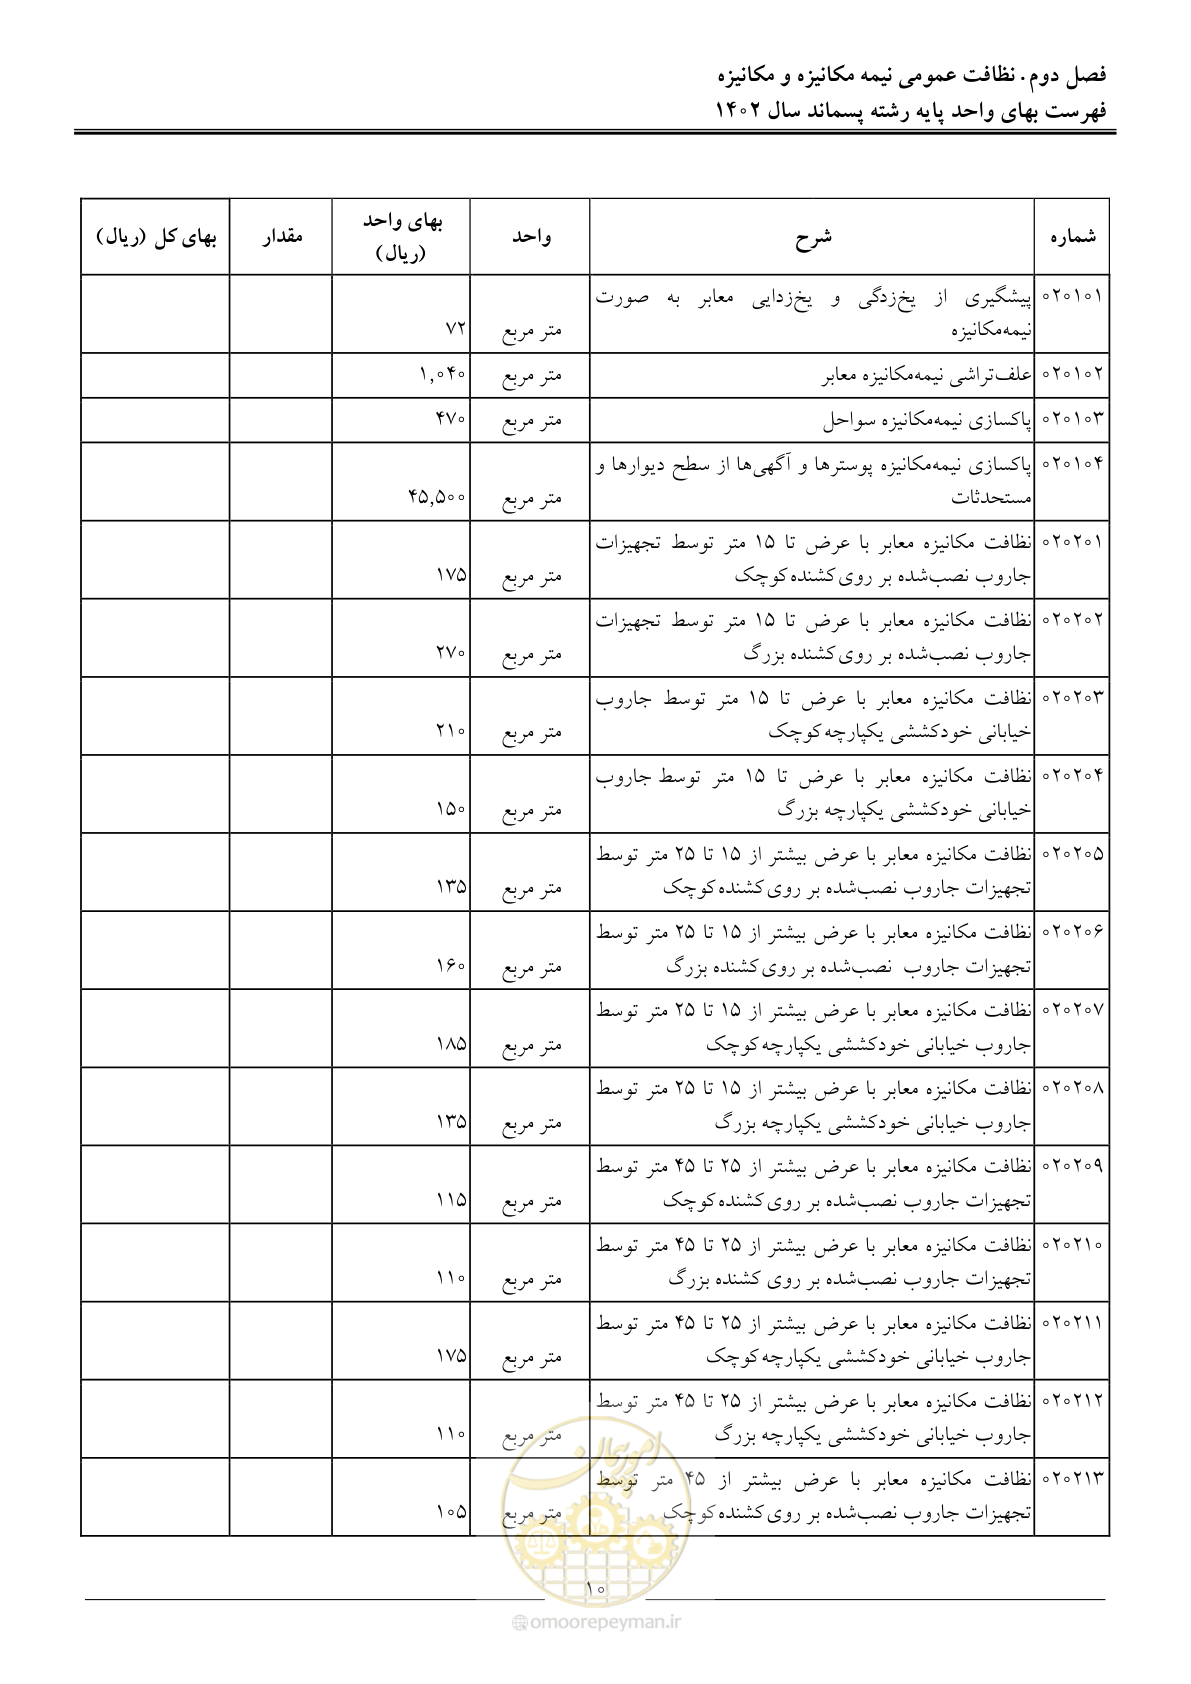 فصل دوم. نظافت عمومی نیمه مکانیزه و مکانیزه
فهرست بهای واحد پایه رشته پسماند سال ۱۴۰۲
شماره شرح واحد بهای واحد (ریال) مقدار بهای کل (ریال)
۰۲۰۱۰۱ پیشگیری از یخ‌زدگی و یخ‌زدایی معابر به صورت
نیمه‌مکانیزه متر مربع ۷۲
۰۲۰۱۰۲ علف‌تراشی نیمه‌مکانیزه معابر متر مربع ۱,۰۴۰
۰۲۰۱۰۳ پاکسازی نیمه‌مکانیزه سواحل متر مربع ۴۷۰
۰۲۰۱۰۴ پاکسازی نیمه‌مکانیزه پوسترها و آگهی‌ها از سطح دیوارها و
مستحدثات متر مربع ۴۵,۵۰۰
۰۲۰۲۰۱ نظافت مکانیزه معابر با عرض تا ۱۵ متر توسط تجهیزات
جاروب نصب‌شده بر روی کشنده کوچک متر مربع ۱۷۵
۰۲۰۲۰۲ نظافت مکانیزه معابر با عرض تا ۱۵ متر توسط تجهیزات
جاروب نصب‌شده بر روی کشنده بزرگ متر مربع ۲۷۰
۰۲۰۲۰۳ نظافت مکانیزه معابر با عرض تا ۱۵ متر توسط جاروب
خیابانی خودکششی یکپارچه کوچک متر مربع ۲۱۰
۰۲۰۲۰۴ نظافت مکانیزه معابر با عرض تا ۱۵ متر توسط جاروب
خیابانی خودکششی یکپارچه بزرگ متر مربع ۱۵۰
۰۲۰۲۰۵ نظافت مکانیزه معابر با عرض بیشتر از ۱۵ تا ۲۵ متر توسط
تجهیزات جاروب نصب‌شده بر روی کشنده کوچک متر مربع ۱۳۵
۰۲۰۲۰۶ نظافت مکانیزه معابر با عرض بیشتر از ۱۵ تا ۲۵ متر توسط
تجهیزات جاروب نصب‌شده بر روی کشنده بزرگ متر مربع ۱۶۰
۰۲۰۲۰۷ نظافت مکانیزه معابر با عرض بیشتر از ۱۵ تا ۲۵ متر توسط
جاروب خیابانی خودکششی یکپارچه کوچک متر مربع ۱۸۵
۰۲۰۲۰۸ نظافت مکانیزه معابر با عرض بیشتر از ۱۵ تا ۲۵ متر توسط
جاروب خیابانی خودکششی یکپارچه بزرگ متر مربع ۱۳۵
۰۲۰۲۰۹ نظافت مکانیزه معابر با عرض بیشتر از ۲۵ تا ۴۵ متر توسط
تجهیزات جاروب نصب‌شده بر روی کشنده کوچک متر مربع ۱۱۵
۰۲۰۲۱۰ نظافت مکانیزه معابر با عرض بیشتر از ۲۵ تا ۴۵ متر توسط
تجهیزات جاروب نصب‌شده بر روی کشنده بزرگ متر مربع ۱۱۰
۰۲۰۲۱۱ نظافت مکانیزه معابر با عرض بیشتر از ۲۵ تا ۴۵ متر توسط
جاروب خیابانی خودکششی یکپارچه کوچک متر مربع ۱۷۵
۰۲۰۲۱۲ نظافت مکانیزه معابر با عرض بیشتر از ۲۵ تا ۴۵ متر توسط
جاروب خیابانی خودکششی یکپارچه بزرگ متر مربع ۱۱۰
۰۲۰۲۱۳ نظافت مکانیزه معابر با عرض بیشتر از ۴۵ متر توسط
تجهیزات جاروب نصب‌شده بر روی کشنده کوچک متر مربع ۱۰۵
امور پیمان
۱۰
omoorepeyman.ir